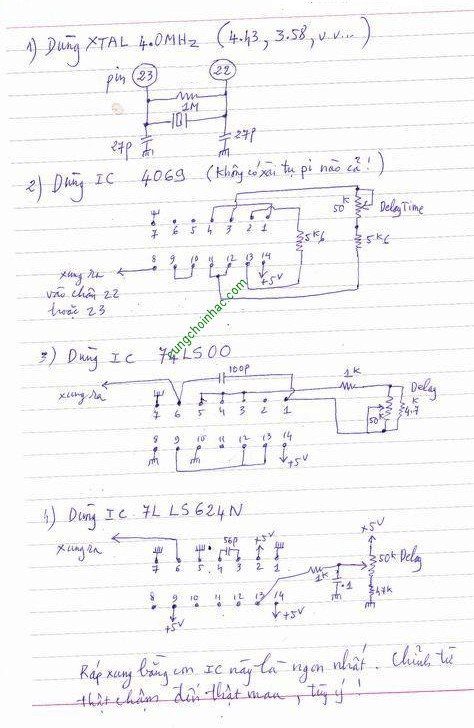 1) Dùng XTAL 4.0MHz (4.43, 3.58, v.v...)
pin 23 22
1M
27p 27p
2) Dùng IC 4069 (Không có xài tụ pi nào cả!)
50K Delay Time
7 6 5 4 3 2 1
5K6 5K6
8 9 10 11 12 13 14
+5V
xung ra
vào chân 22
hoặc 23
cungchoinhac.com
3) Dùng IC 74LS00
100p
xung ra
1K Delay
7 6 5 4 3 2 1
50K 4.7
8 9 10 11 12 13 14
+5V
4) Dùng IC 7L LS624N
+5V
xung ra
56p +5V
7 6 5 4 3 2 1
50K Delay
1K
.1
47K
8 9 10 11 12 13 14
+5V +5V
Ráp xung bằng con IC này là ngon nhất. Chỉnh từ
thật chậm đến thật mau, tùy ý!